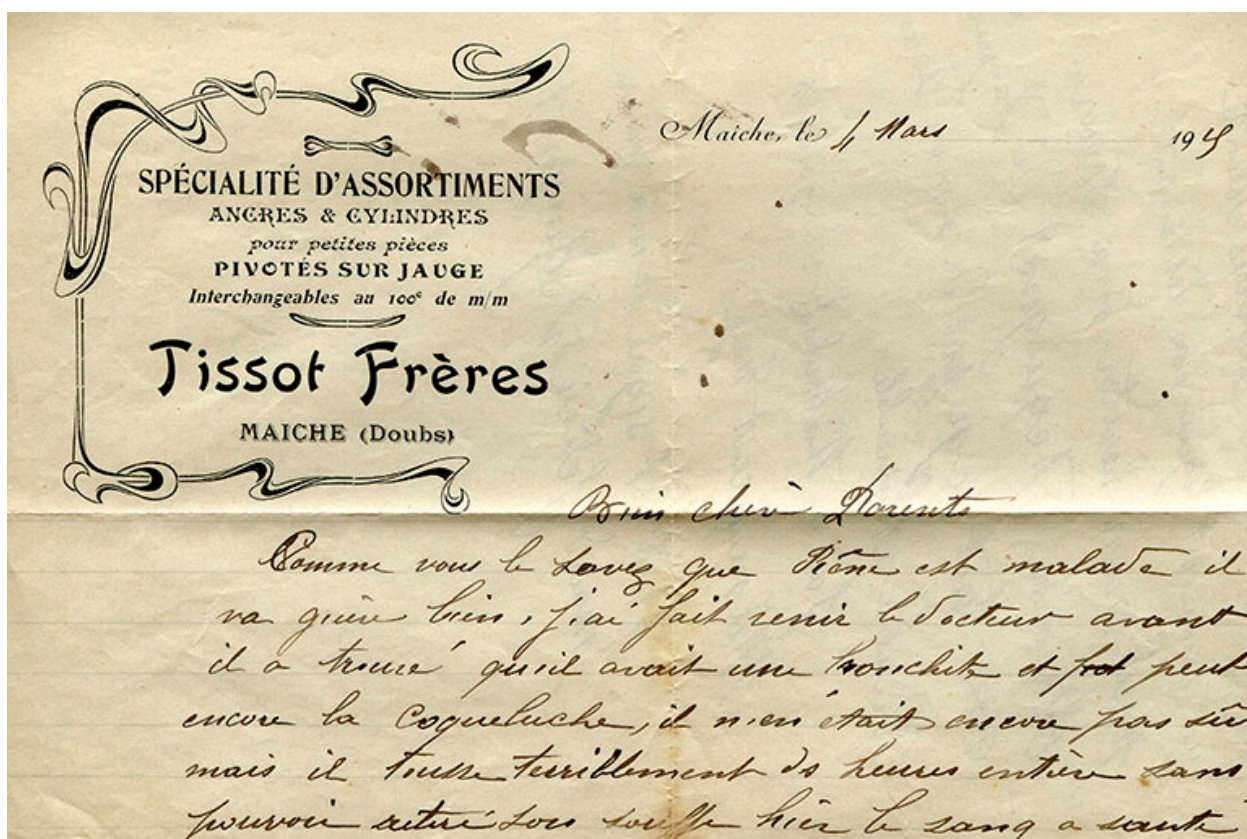 SPÉCIALITÉ D'ASSORTIMENTS
ANCRES & CYLINDRES
pour petites pièces
PIVOTÉS SUR JAUGE
Interchangeables au 100e de m/m
Tissot Frères
MAICHE (Doubs)
Maiche, le 4 Mars 19
chère Parents
Comme vous le savez que est malade il
va guère bien, j'ai fait venir le docteur avant
il a trouvé qu'il avait une bronchite et peut
encore la coqueluche, il n'en était encore pas sûr
mais il tousse terriblement ds heures entière sans
pouvoir son souffle hier le sang a sauté